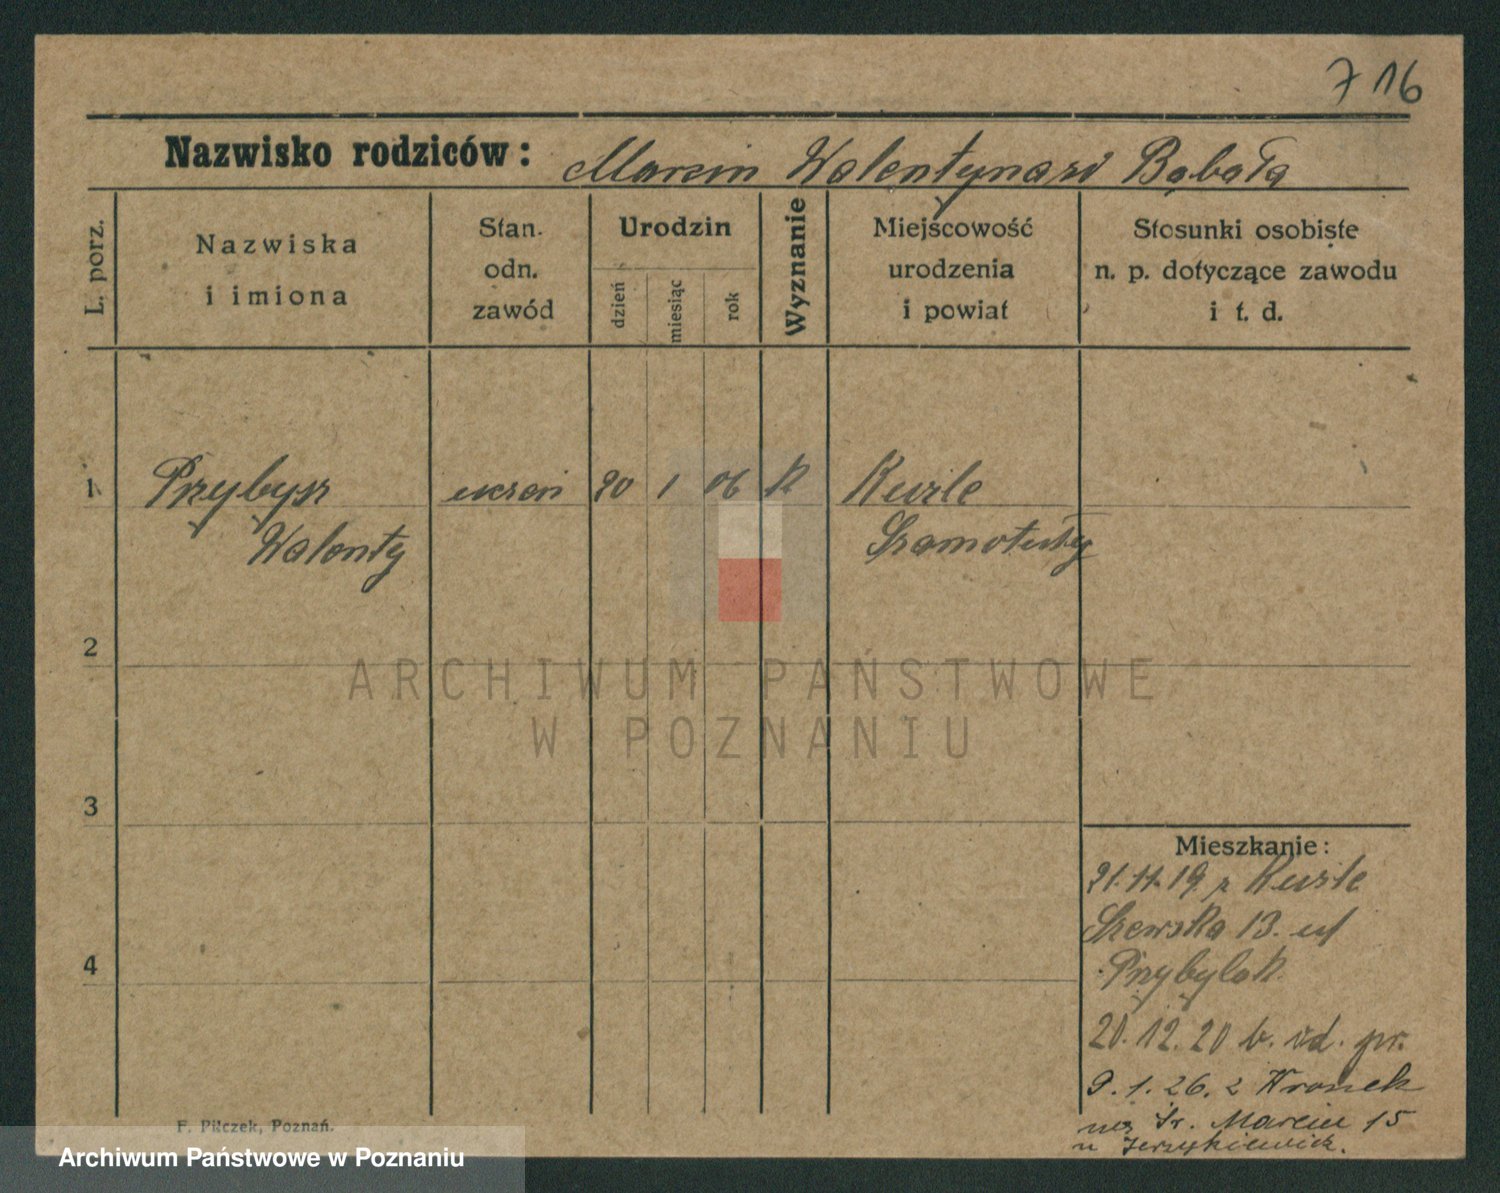 716
Nazwisko rodziców: Marcin Walentyna zd Bąbała
L. porz.
Nazwiska
i imiona
Stan.
odn.
zawód
Urodzin
dzień
miesiąc
rok
Wyznanie
Miejscowość
urodzenia
i powiat
Stosunki osobiste
n. p. dotyczące zawodu
i t. d.
1 Przybysz uczeń 20 1 06 K Kuźle
Walenty Szamotuły
2
ARCHIWUM PAŃSTWOWE
W POZNANIU
3
Mieszkanie:
21.11.19 z Kuźle
Szewska 13.
4
Przybylak
20.12.20
9.1.26. z Wronek
św. Marcin 15
u Jerzykiewicz.
F. Pilczek, Poznań.
Archiwum Państwowe w Poznaniu